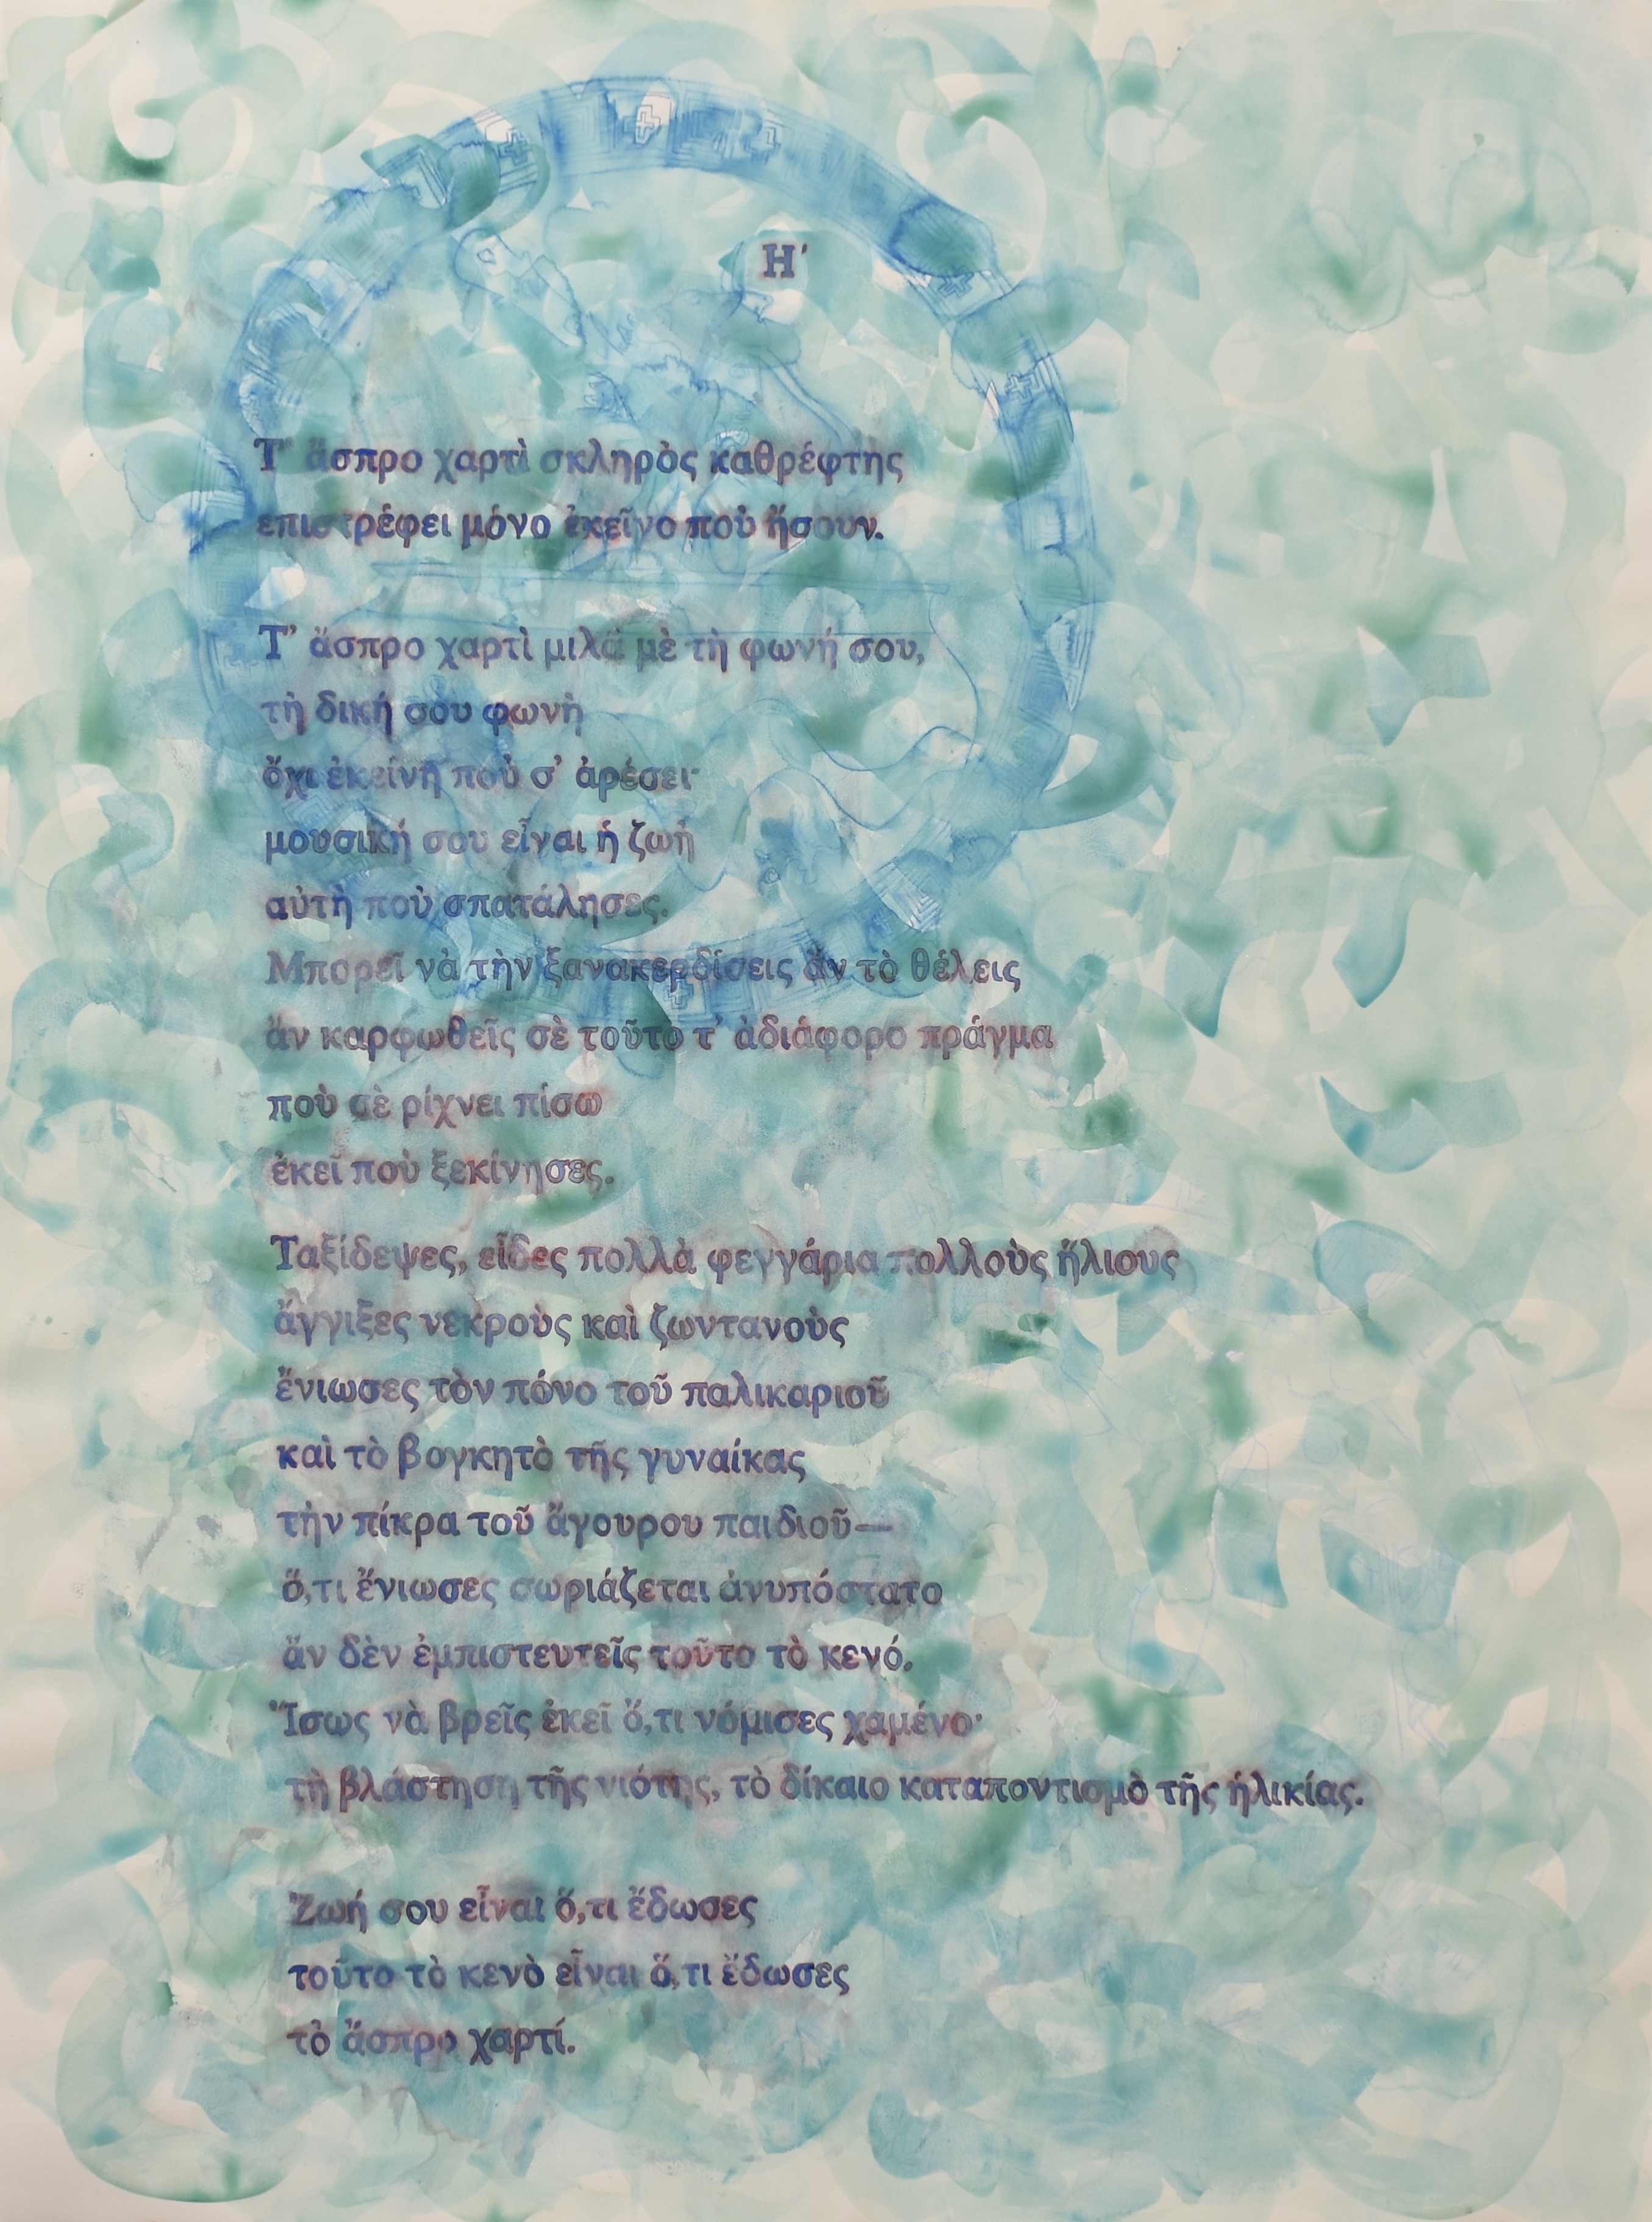 Η'
Τ' ἄσπρο χαρτὶ σκληρὸς καθρέφτης
επιστρέφει μόνο ἐκεῖνο ποὺ ἤσουν.
Τ' ἄσπρο χαρτὶ μιλᾶ μὲ τὴ φωνή σου,
τὴ δική σου φωνὴ
ὄχι ἐκείνη ποὺ σ' ἀρέσει·
μουσική σου εἶναι ἡ ζωὴ
αὐτὴ ποὺ σπατάλησες.
Μπορεῖ νὰ τὴν ξανακερδίσεις ἂν τὸ θέλεις
ἂν καρφωθεῖς σὲ τοῦτο τ' ἀδιάφορο πράγμα
ποὺ σὲ ρίχνει πίσω
ἐκεῖ ποὺ ξεκίνησες.
Ταξίδεψες, εἶδες πολλὰ φεγγάρια πολλοὺς ἥλιους
ἄγγιξες νεκροὺς καὶ ζωντανοὺς
ἔνιωσες τὸν πόνο τοῦ παλικαριοῦ
καὶ τὸ βογκητὸ τῆς γυναίκας
τὴν πίκρα τοῦ ἄγουρου παιδιοῦ—
ὅ,τι ἔνιωσες σωριάζεται ἀνυπόστατο
ἂν δὲν ἐμπιστευτεῖς τοῦτο τὸ κενό.
Ἴσως νὰ βρεῖς ἐκεῖ ὅ,τι νόμισες χαμένο·
τὴ βλάστηση τῆς νιότης, τὸ δίκαιο καταποντισμὸ τῆς ἡλικίας.
Ζωή σου εἶναι ὅ,τι ἔδωσες
τοῦτο τὸ κενὸ εἶναι ὅ,τι ἔδωσες
τὸ ἄσπρο χαρτί.